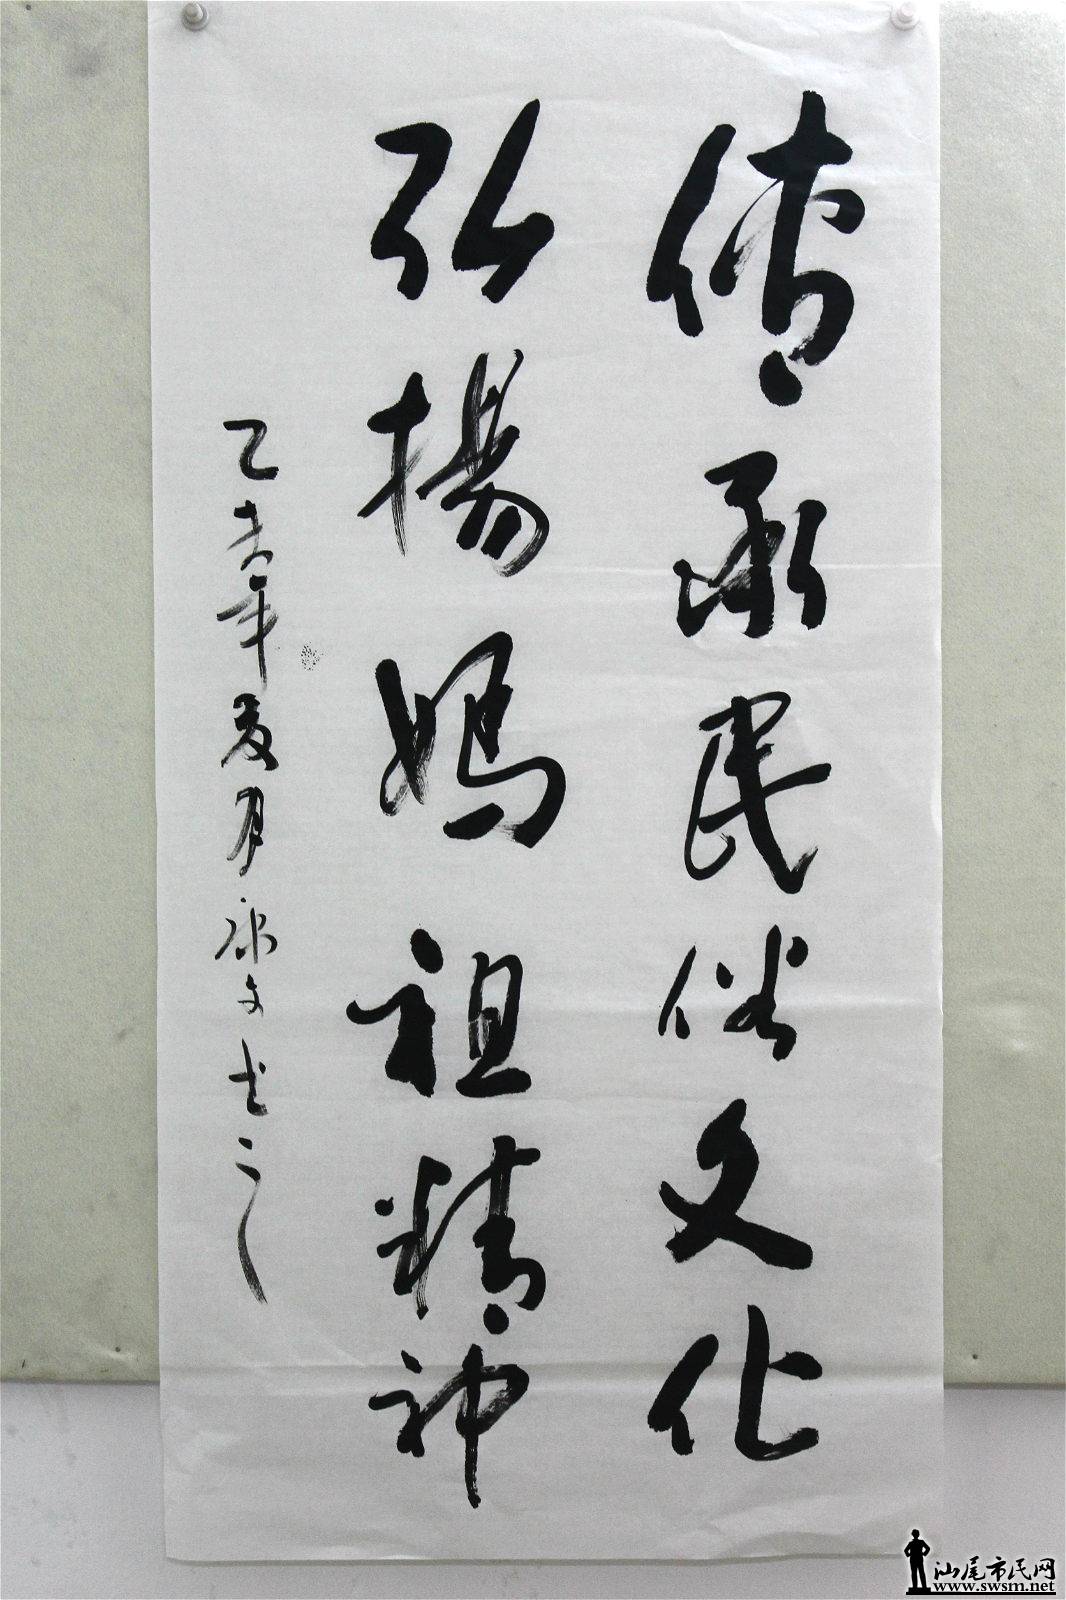 傳承民俗文化
弘揚媽祖精神
乙未年夏月 文书之
汕尾市民网
www.swsm.net